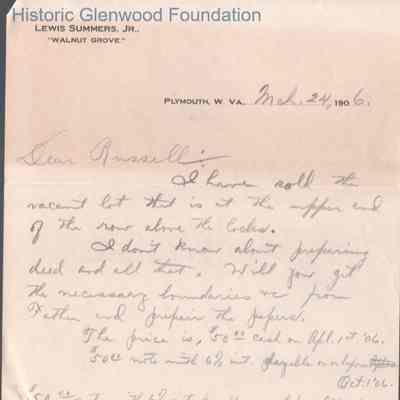 Historic Glenwood Foundation
LEWIS SUMMERS, JR.,
"WALNUT GROVE."
PLYMOUTH, W. VA., Mch. 24, 1906.
Dear Russell:
I have sold the
vacant lot that is at the upper end
of the row above the locks.
I don't know about preparing
deed and all that. Will you get
the necessary boundaries &c from
Father and prepair the papers.
The price is, $50.00 cash on Apl. 1st '06.
$50.00 note with 6% int. payable on or before
Oct. 1 '06.